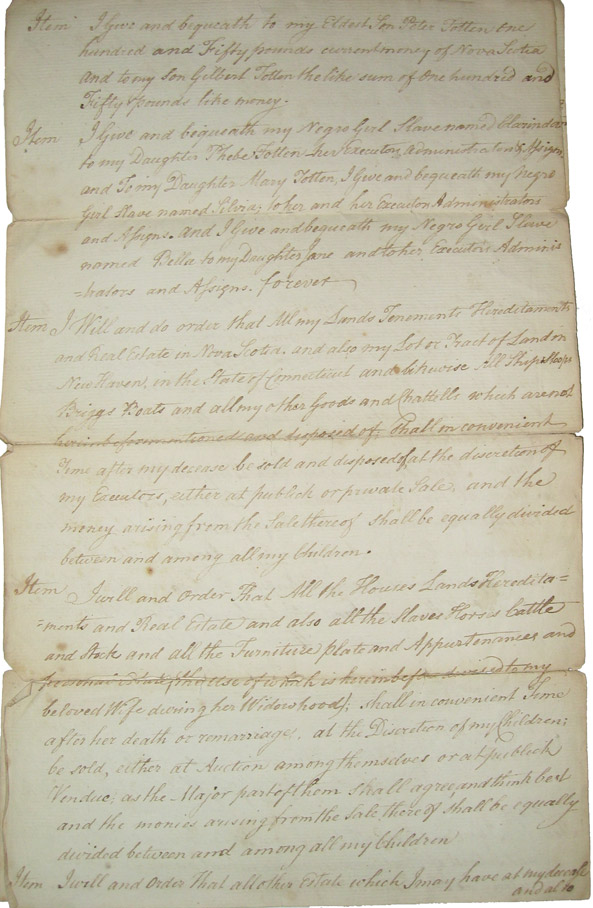 Item I Give and bequeath to my Eldest Son Peter Totten One
hundred and Fifty pounds current money of Nova Scotia
And to my Son Gilbert Totten the like sum of One hundred and
Fifty pounds like money.
Item I Give and bequeath my Negro Girl Slave named Clarinder
to my Daughter Phebe Totten her Executors Administrators & Assigns
and To my Daughter Mary Totten, I Give and bequeath my Negro
Girl Slave named Silvia; to her and her Executors Administrators
and Assigns. And I Give and bequeath my Negro Girl Slave
named Bella to my Daughter Jane and to her Executors Adminis
=trators and Assigns. forever
Item I Will and do order that All my Lands Tenements Hereditaments
and Real Estate in Nova Scotia. and also my Lot or Tract of Land on
New Haven, in the State of Connecticut and likewise All Ships Sloops
Briggs Boats and all my other Goods and Chattells which are not
herein before mentioned and disposed of, Shall in convenient
Time after my decease be sold and disposed of at the discretion of
my Executors, either at publick or private Sale, and the
money arising from the Sale thereof shall be equally divided
between and among all my Children.
Item I will and Order That All the Houses Lands Heredita=
=ments and Real Estate and also all the Slaves Horses Cattle
and Stock and all the Furniture plate and Appurtenances and
personal Estate (the use of which is herein before devised to my
beloved Wife during her Widowhood); shall in convenient Time
after her death or remarriage, at the Discretion of my Children;
be sold, either at Auction among themselves or at publick
Vendue, as the Major part of them shall agree and think best
and the monies arising from the Sale thereof shall be equally
divided between and among all my Children
Item I will and Order That all other Estate which I may have at my decease
and also